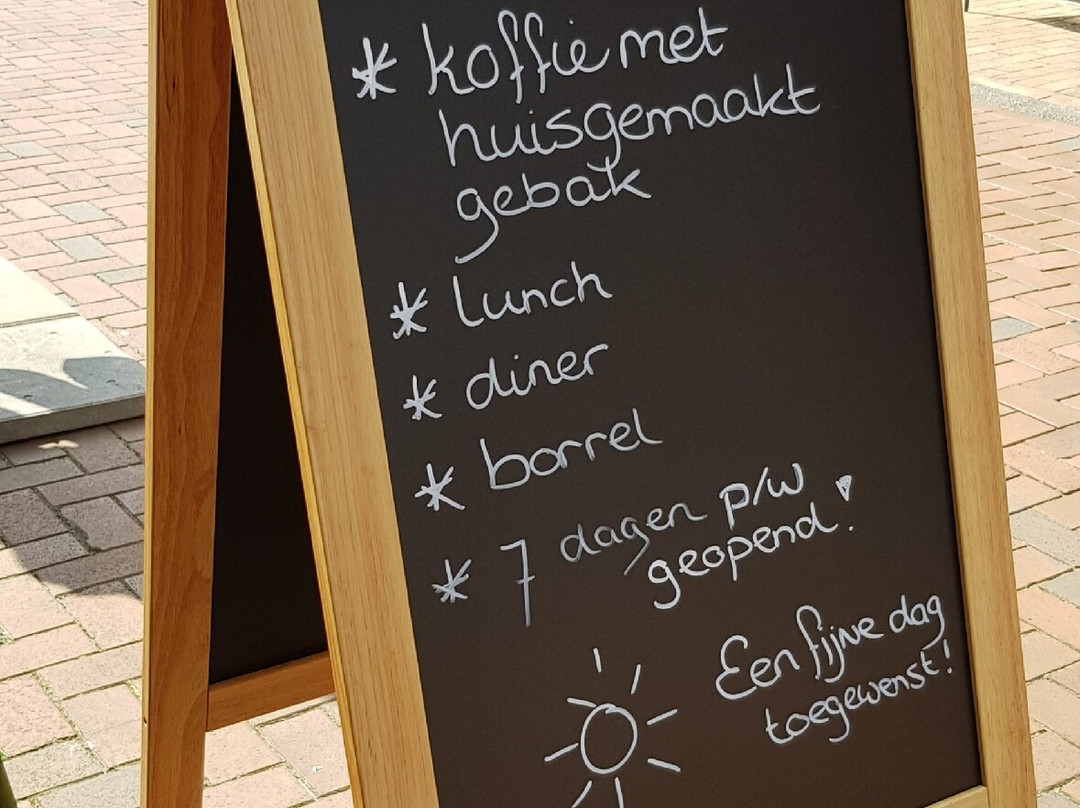 * koffie met
huisgemaakt
gebak
* lunch
* diner
* borrel
* 7 dagen p/w
geopend!
Een fijne dag
toegewenst!